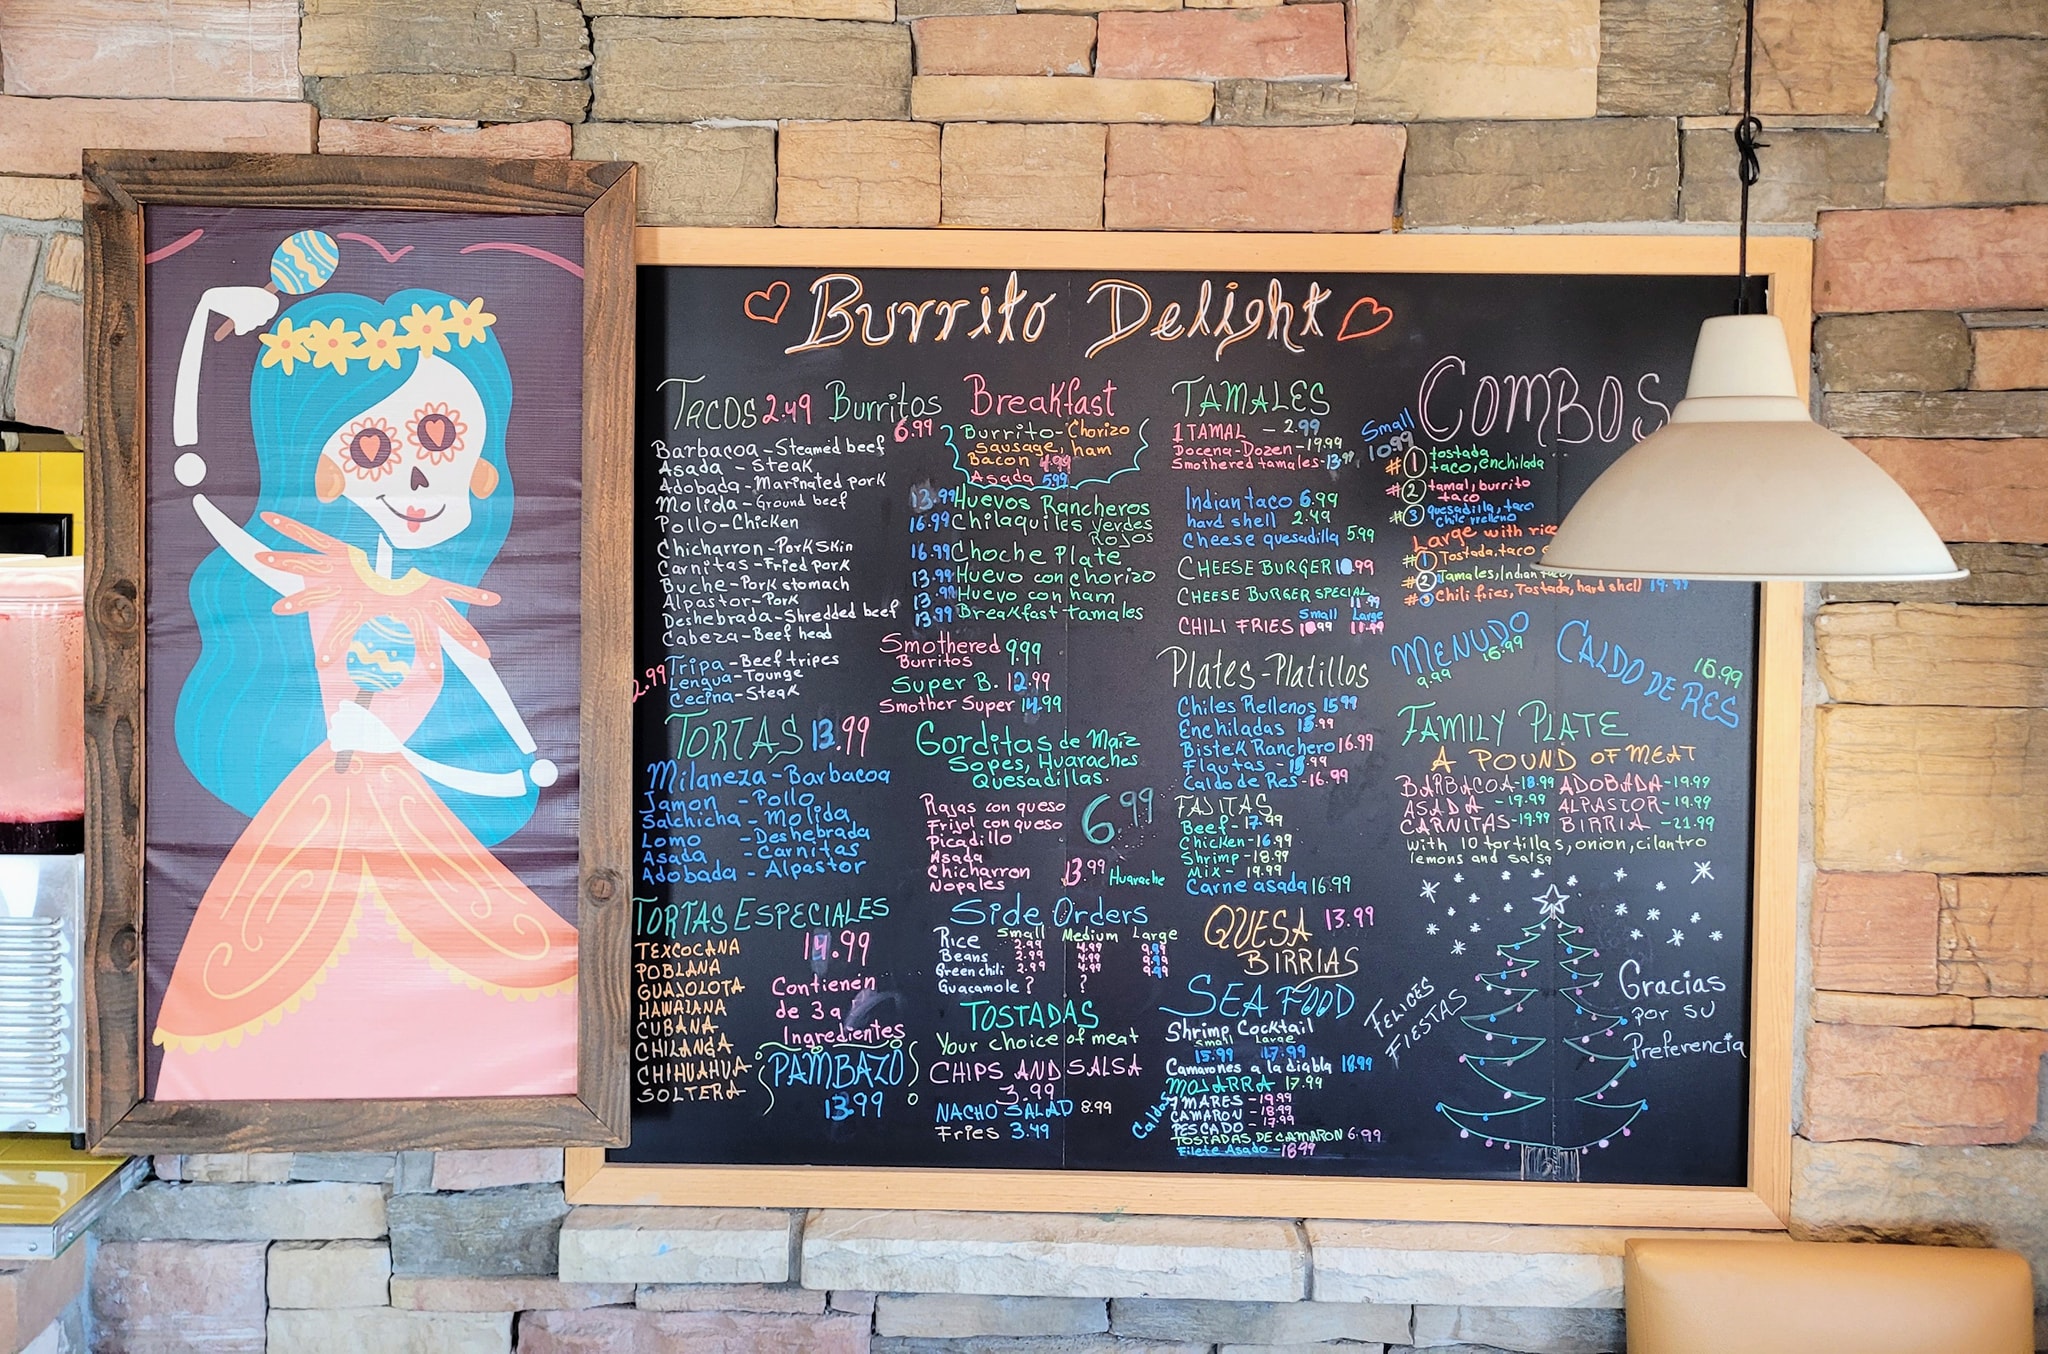 Burrito Delight
TACOS 2.49 Burritos 6.99
Barbacoa - Steamed beef
Asada - Steak
Adobada - Marinated pork
Molida - Ground beef
Pollo - Chicken
Chicharron - Pork Skin
Carnitas - Fried pork
Buche - Pork stomach
Alpastor - Pork
Deshebrada - Shredded beef
Cabeza - Beef head
2.99 Tripa - Beef tripes
Lengua - Tounge
Cecina - Steak
TORTAS 13.99
Milaneza - Barbacoa
Jamon - Pollo
Salchicha - Molida
Lomo - Deshebrada
Asada - Carnitas
Adobada - Alpastor
TORTAS ESPECIALES
14.99
TEXCOCANA
POBLANA
GUAJOLOTA
HAWAIANA
CUBANA
CHILANGA
CHIHUAHUA
SOLTERA
Contienen
de 3 a
Ingredientes
PAMBAZO
13.99
Breakfast
Burrito - Chorizo
Sausage, ham
Bacon 4.99
Asada 5.99
13.99 Huevos Rancheros
16.99 Chilaquiles verdes
Rojos
16.99 Choche Plate
13.99 Huevo con chorizo
13.99 Huevo con ham
13.99 Breakfast tamales
Smothered 9.99
Burritos
Super B. 12.99
Smother Super 14.99
Gorditas de Maiz
Sopes, Huaraches
Quesadillas
6.99
Rajas con queso
Frijol con queso
Picadillo
Asada
Chicharron
Nopales
13.99 Huarache
Side Orders
Small Medium Large
Rice 2.99 4.99 9.99
Beans 2.99 4.99 9.99
Green chili 2.99 4.99 9.99
Guacamole ? ?
TOSTADAS
Your choice of meat
CHIPS AND SALSA
3.99
NACHO SALAD 8.99
Fries 3.49
TAMALES
1 TAMAL - 2.99
Docena - Dozen - 19.99
Smothered tamales - 13.99
Indian taco 6.99
hard shell 2.49
Cheese quesadilla 5.99
CHEESE BURGER 10.99
CHEESE BURGER SPECIAL
11.99
Small Large
CHILI FRIES 10.99 11.99
Plates - Platillos
Chiles Rellenos 15.99
Enchiladas 15.99
Bistek Ranchero 16.99
Flautas - 15.99
Caldo de Res - 16.99
FAJITAS
Beef - 17.99
Chicken - 16.99
Shrimp - 18.99
Mix - 19.99
Carne asada 16.99
QUESA 13.99
BIRRIAS
SEA FOOD
Shrimp Cocktail
Small Large
15.99 17.99
Camarones a la diabla 18.99
MOJARRA 17.99
Caldos
7 MARES - 19.99
CAMARON - 18.99
PESCADO - 17.99
TOSTADAS DE CAMARON 6.99
Filete Asado - 18.99
COMBOS
Small
10.99
#1 tostada
taco, enchilada
#2 tamal, burrito
taco
#3 quesadilla, taco
Chile rrelleno
Large with rice
#1 Tostada, taco
#2 Tamales, Indian taco,
#3 Chili fries, Tostada, hard shell 19.99
MENUDO
9.99 16.99
CALDO DE RES
16.99
FAMILY PLATE
A POUND OF MEAT
BARBACOA - 18.99 ADOBADA - 19.99
ASADA - 19.99 ALPASTOR - 19.99
CARNITAS - 19.99 BIRRIA - 21.99
with 10 tortillas, onion, cilantro
lemons and salsa
FELICES
FIESTAS
Gracias
por su
Preferencia